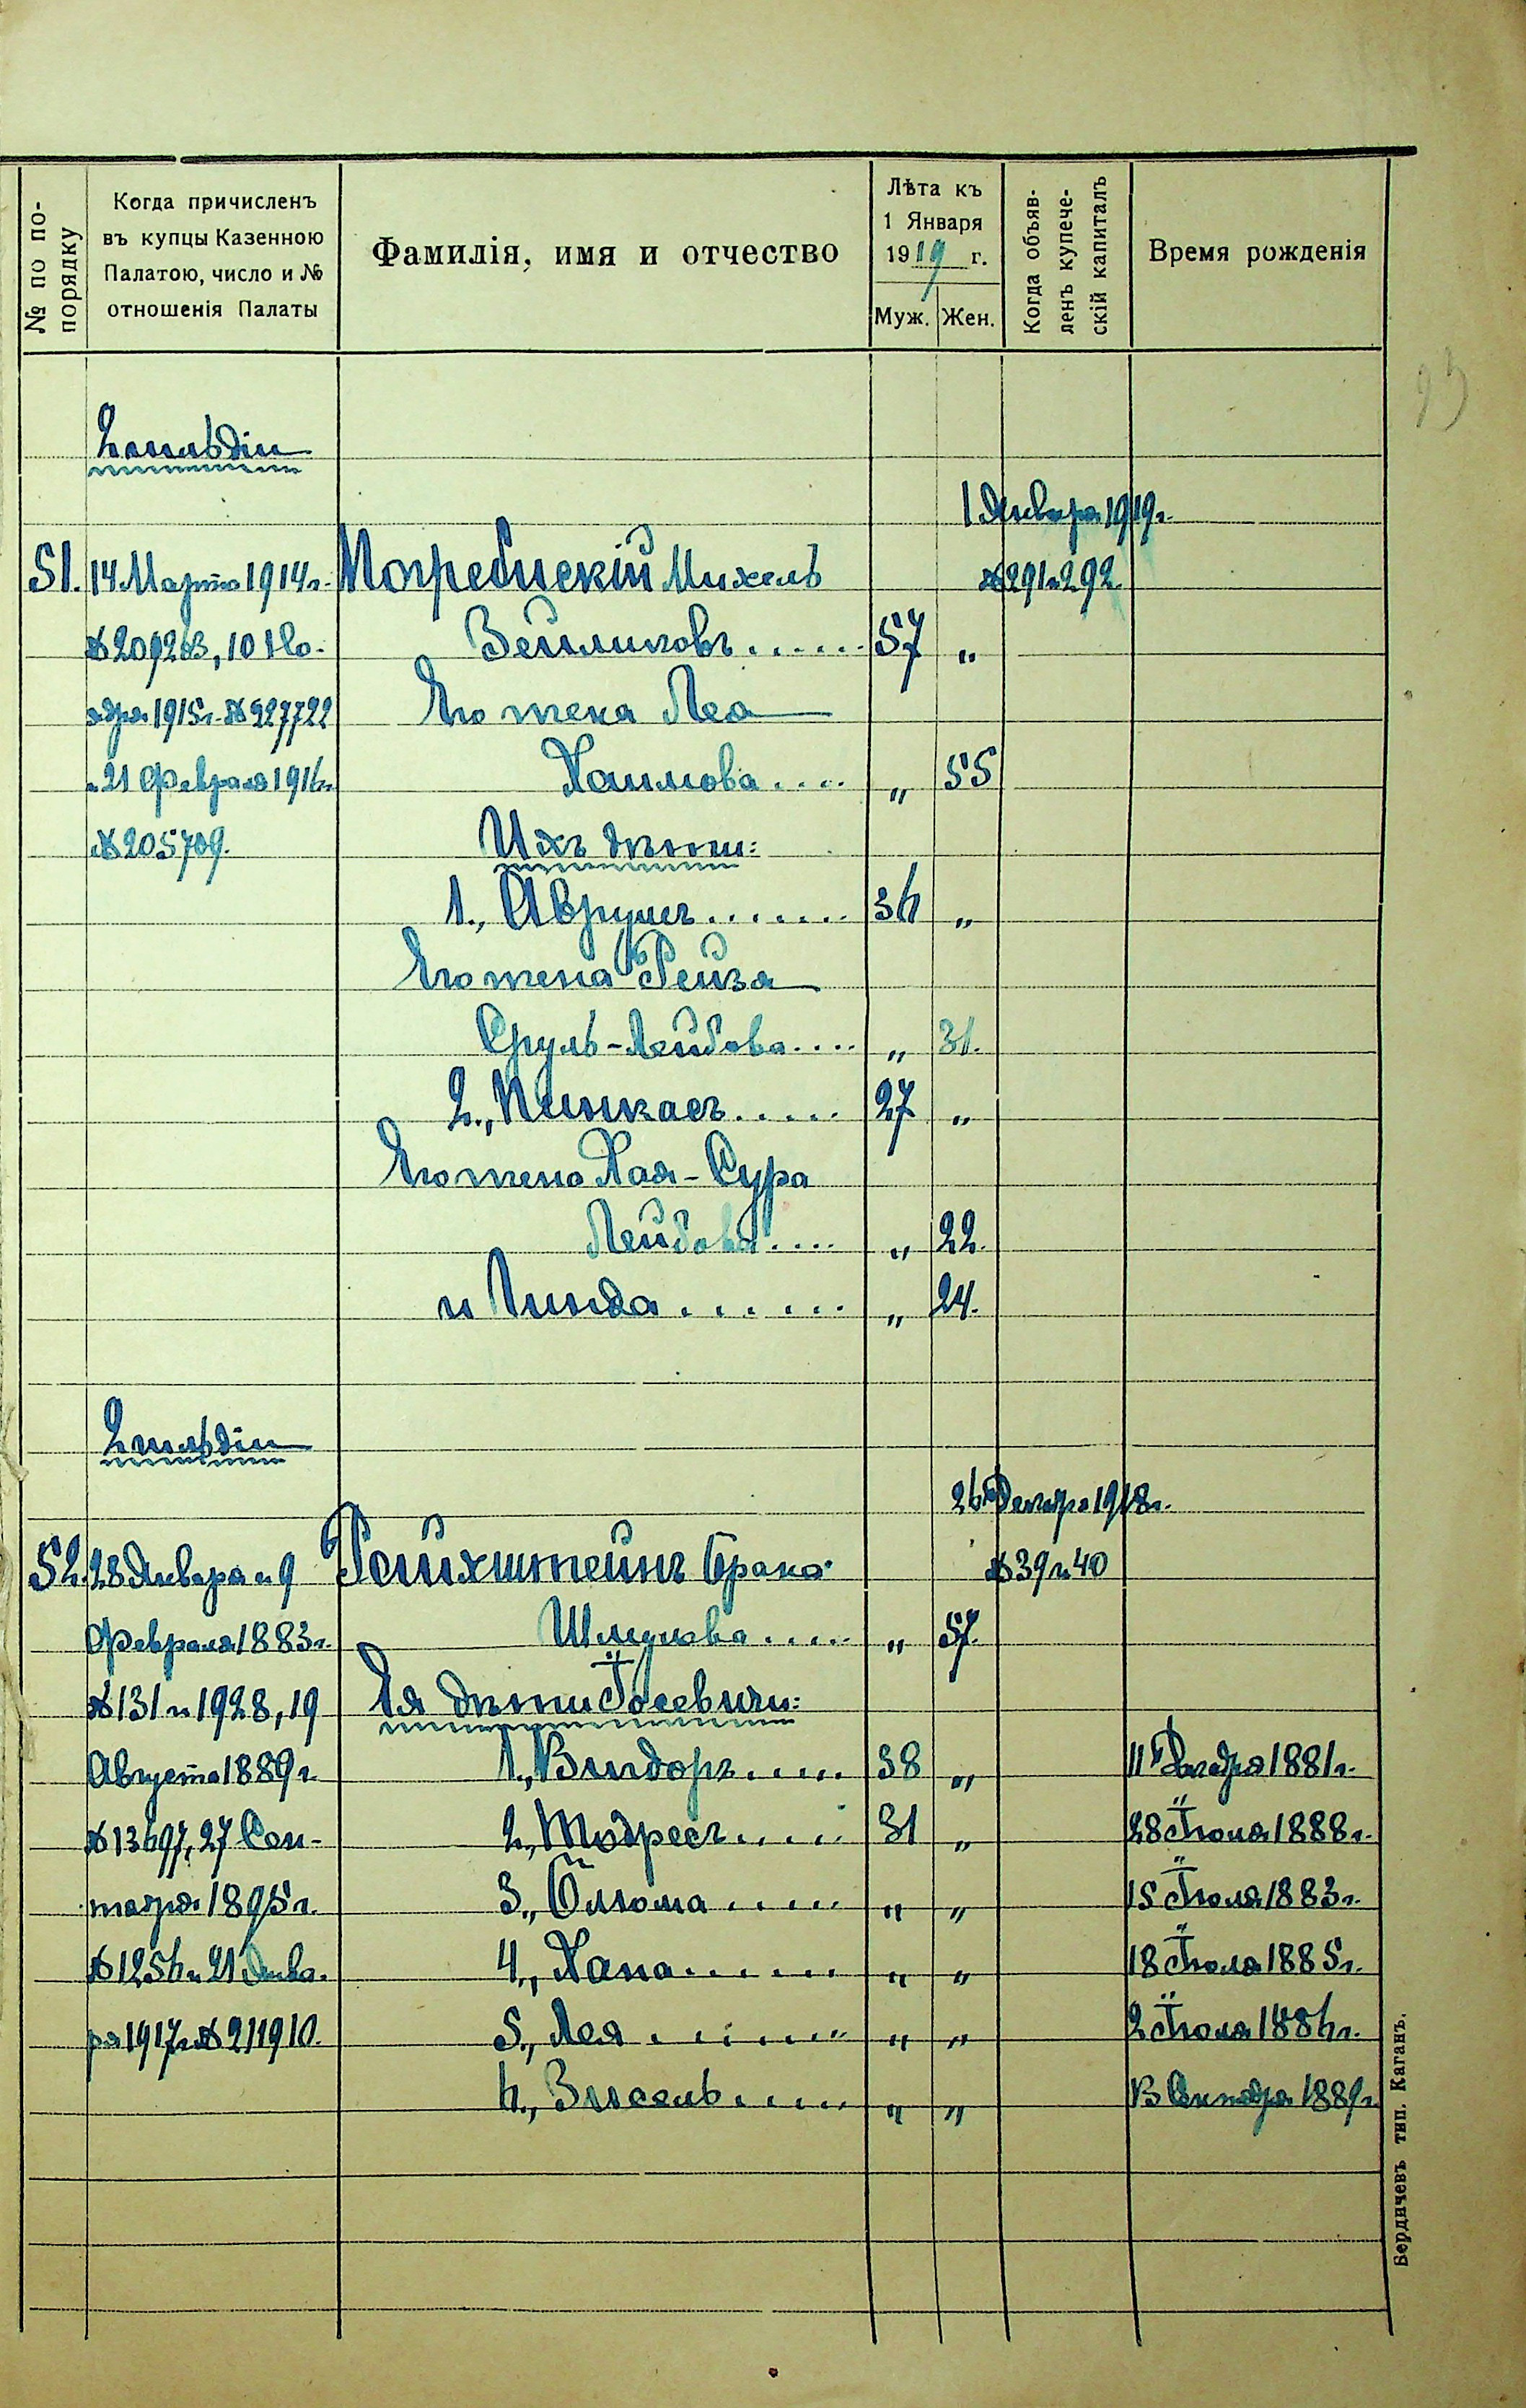 № по по-
порядку
Когда причисленъ
въ купцы Казенною
Палатою, число и №
отношенія Палаты
Фамилія, имя и отчество
Лѣта къ
1 Января
1919 г.
Муж.
Жен.
Когда объяв-
ленъ купече-
скій капиталъ
Время рожденія
2 гильдіи
1 Января 1919 г.
51. 14 Марта 1914 г. Погребискій Михель №291 и 292.
10 Но- Зейликовъ...... 57 „
ября 1915 г. №227722 Его жена Леа
и 21 Февраля 1916 г. Хаимова.... „ 55
№205709. Ихъ дѣти:
1., Аврумъ....... 36 „
Его жена Рейза
Сруль-Лейбова.... „ 31.
2., Пинкасъ..... 27 „
Его жена Хая-Сура
Лейбова.... „ 22.
и Линда...... „ 24.
2 гильдіи
26 Декабря 1918 г.
52. 28 Января и 9 Рейхштейнъ Брана №39 и 40
Февраля 1883 г. Шмулова.... „ 57.
№131 и 1928, 19 Ея дѣти Іосевичи:
Августа 1889 г. 1., Вигдоръ..... 38 „ 11 Декабря 1881 г.
№13697, 27 Сен- 2., Тодресъ..... 31 „ 28 Іюля 1888 г.
тября 1895 г. 3., „ „ 15 Іюля 1883 г.
№1256 и 21 Янва- 4., Хана...... „ „ 18 Іюля 1885 г.
ря 1917 г. №211910. 5., Лея ....... „ „ 2 Іюля 1886 г.
6., Зисель..... „ „ 13 Октября 1889 г.
Бердичевъ тип. Каганъ.